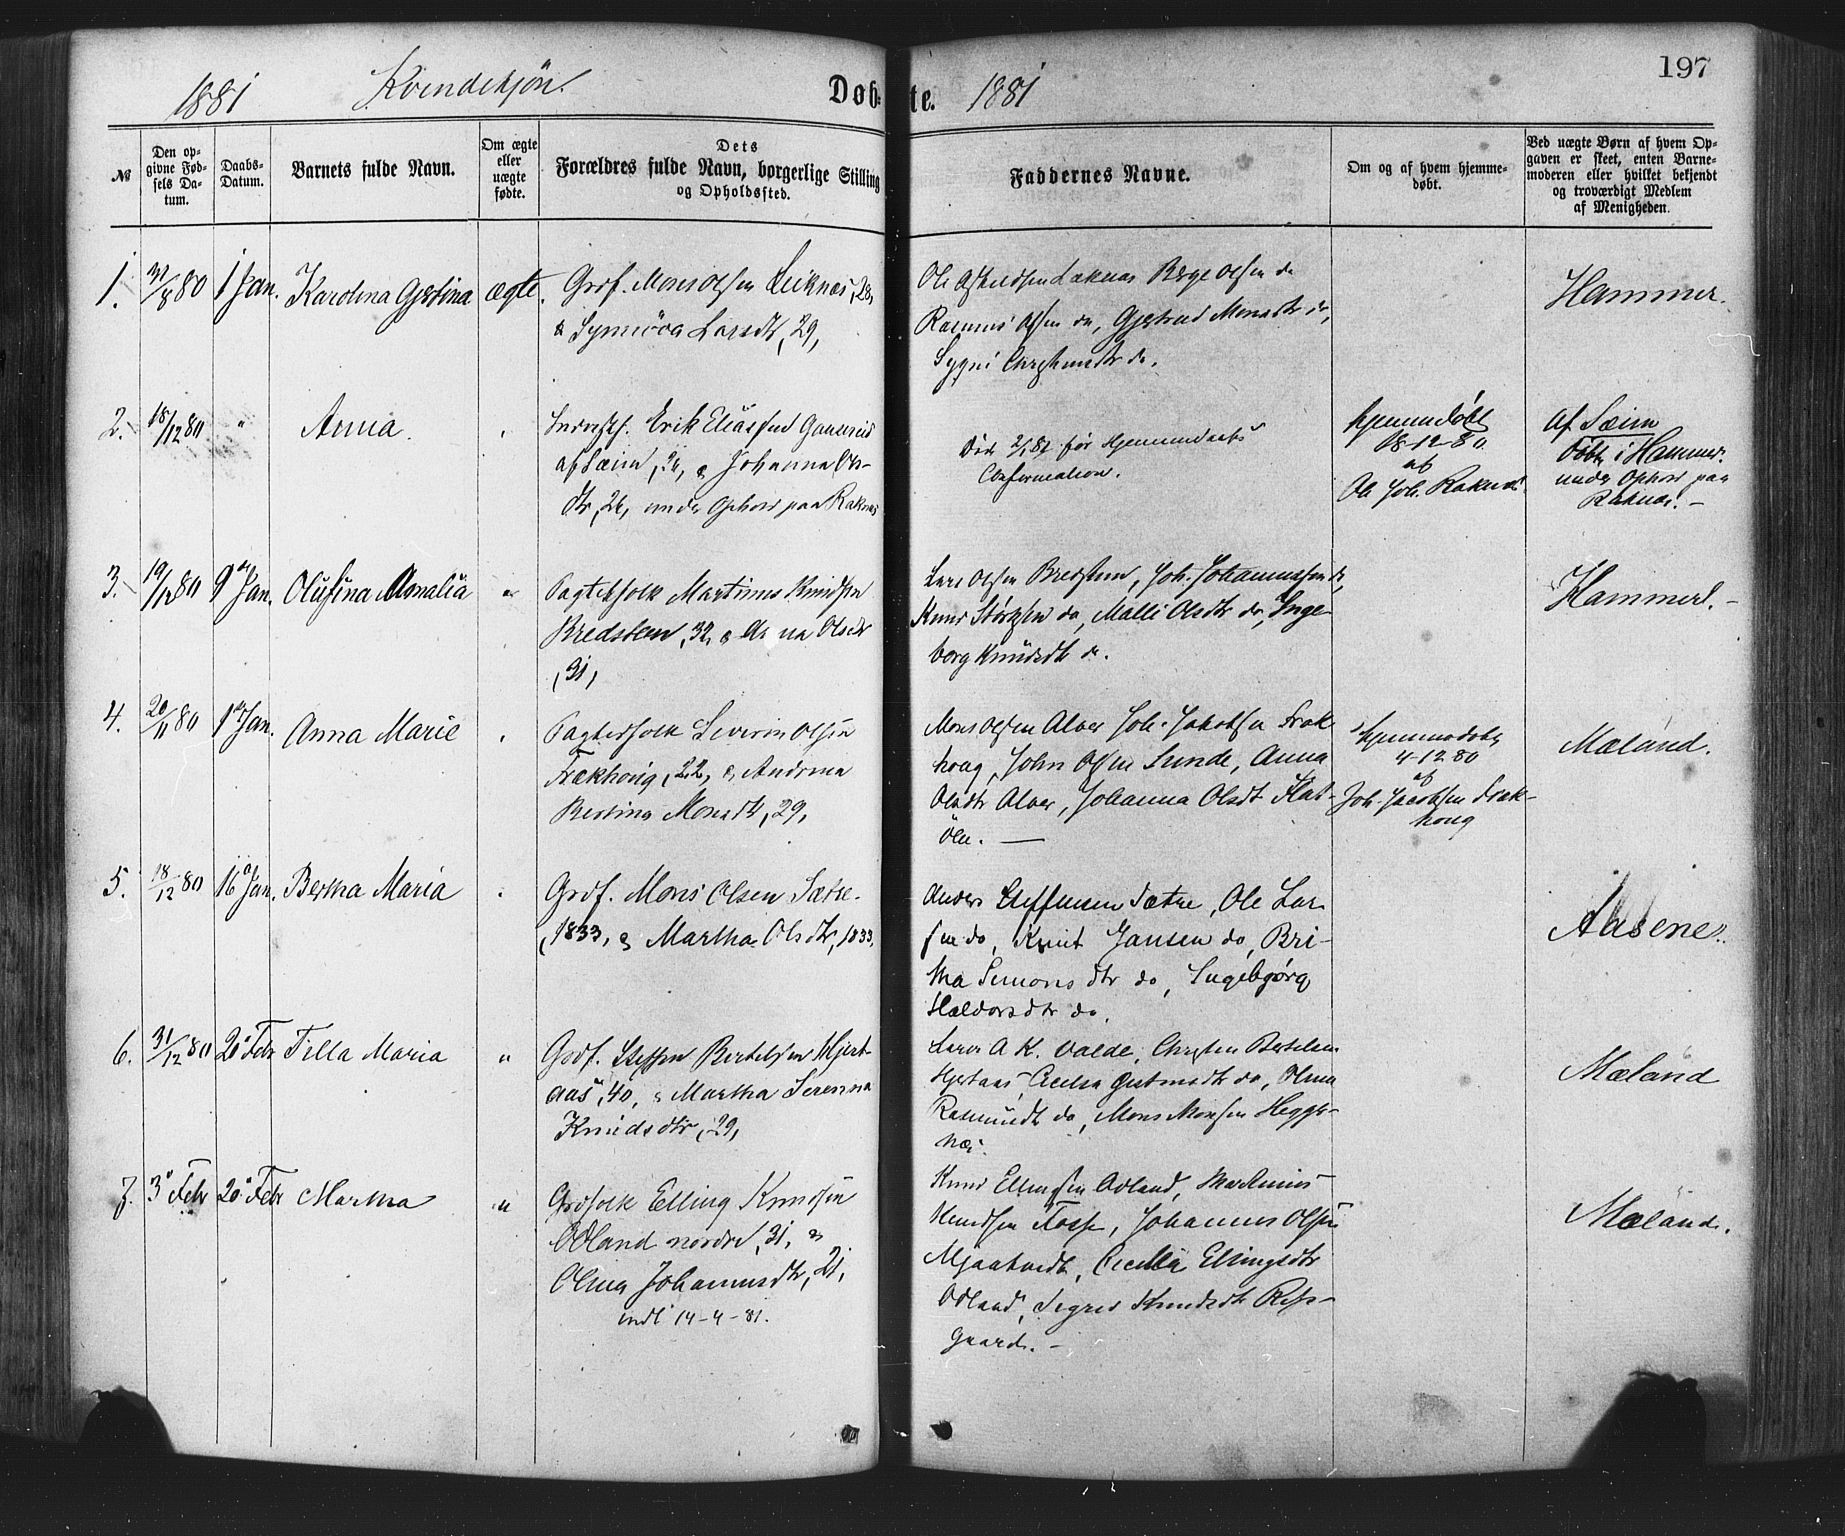 197
1881 Kvindekjøn. Døb- te. 1881
№
Den op-
givne Fød-
sels Da-
tum.
Daabs-
Datum.
Barnets fulde Navn.
Om ægte
eller
uægte
fødte.
Dets
Forældres fulde Navn, borgerlige Stilling
og Opholdssted.
Faddernes Navne.
Om og af hvem hjemme-
døbt.
Ved uægte Børn af hvem Op-
gaven er skeet, enten Barne-
moderen eller hvilket bekjendt
og troværdigt Medlem
af Menigheden.
1. 80 1 Jan. Karolina Gjertina ægte.
Grdf. Mons Olsen 28,
& Synnöva Larsdt, 29,
Olsen do
Rasmus Olsen do, Gjertrud Monsdtr do,
do.
Hammer.
2. 18/12 80 " Anna.
Erik Eliassen
af Sæim, & Johanna Ols-
dtr, 26, under Ophold paa Raknes
Död før Hjemmedaabs
Confirmation.
hjemmedöbt
18-12-80
af
Ole Joh. Raknes
af Sæim
Födt i Hammer.
under Ophold paa
Raknes. -
3. 19/12 80 9 Jan. Olufina Amalia
Pagterfolk Martinus Knudsen
Bredsten, 32, & Anna Olsdtr
, 31,
Lars Olsen Bredsten, Joh. Johannessen do,
Knud do, Malli Olsdtr do, Inge-
borg Knudsdt do.
Hammer. -
4. 20/11 80 1 Jan. Anna Marie
Pagterfolk Severin Olsen
Frækhoug, 22, & Andrina
Bertina Monsdt, 29,
Mons Olsen Alver Joh. Jakobsen Fræk
houg, John Olsen Sunde, Anna
Olsdtr Alver, Johanna Olsdt Flat-
öen. —
hjemmedøbt
4-12 80
af
Joh. Jacobsen Fræk-
houg
Mæland.
5. 18/12 80 16 Jan. Bertha Maria
Grdf. Mons Olsen Sætre
, 1833, & Martha Olsdtr, 1833,
Anders Steffensen Sætre, Ole Lar
sen do, Knut Jansen do, Bri-
tha Simonsdtr do, Ingebjørg
Haldorsdtr do.
Aasene.
6. 31/12 80 20 Febr Tella Maria "
Grdf. Steffen Bertelsen Hjert-
aas, 40, & Martha Serenna
Knudsdtr, 29,
Lærer A. K. Valde, Bertelsen
Hjertaas, Cecilia do, Olina
Rasmusdt do, Mons Monsen Hegger-
næs.
Mæland
7. 3 Febr 20 Febr Martha "
Grdfolk Elling Knudsen
Odland nordre, 31, &
Olina Johannesdtr, 21,
indl 14-4-81.
Knud Ellingsen Odland, Martinus
Knudsen Fosse, Johannes Olsen
Mjaatvedt, Cecilia Ellingsdtr
Odland, Sigrid Knudsdt
Gaard. -
Mæland.